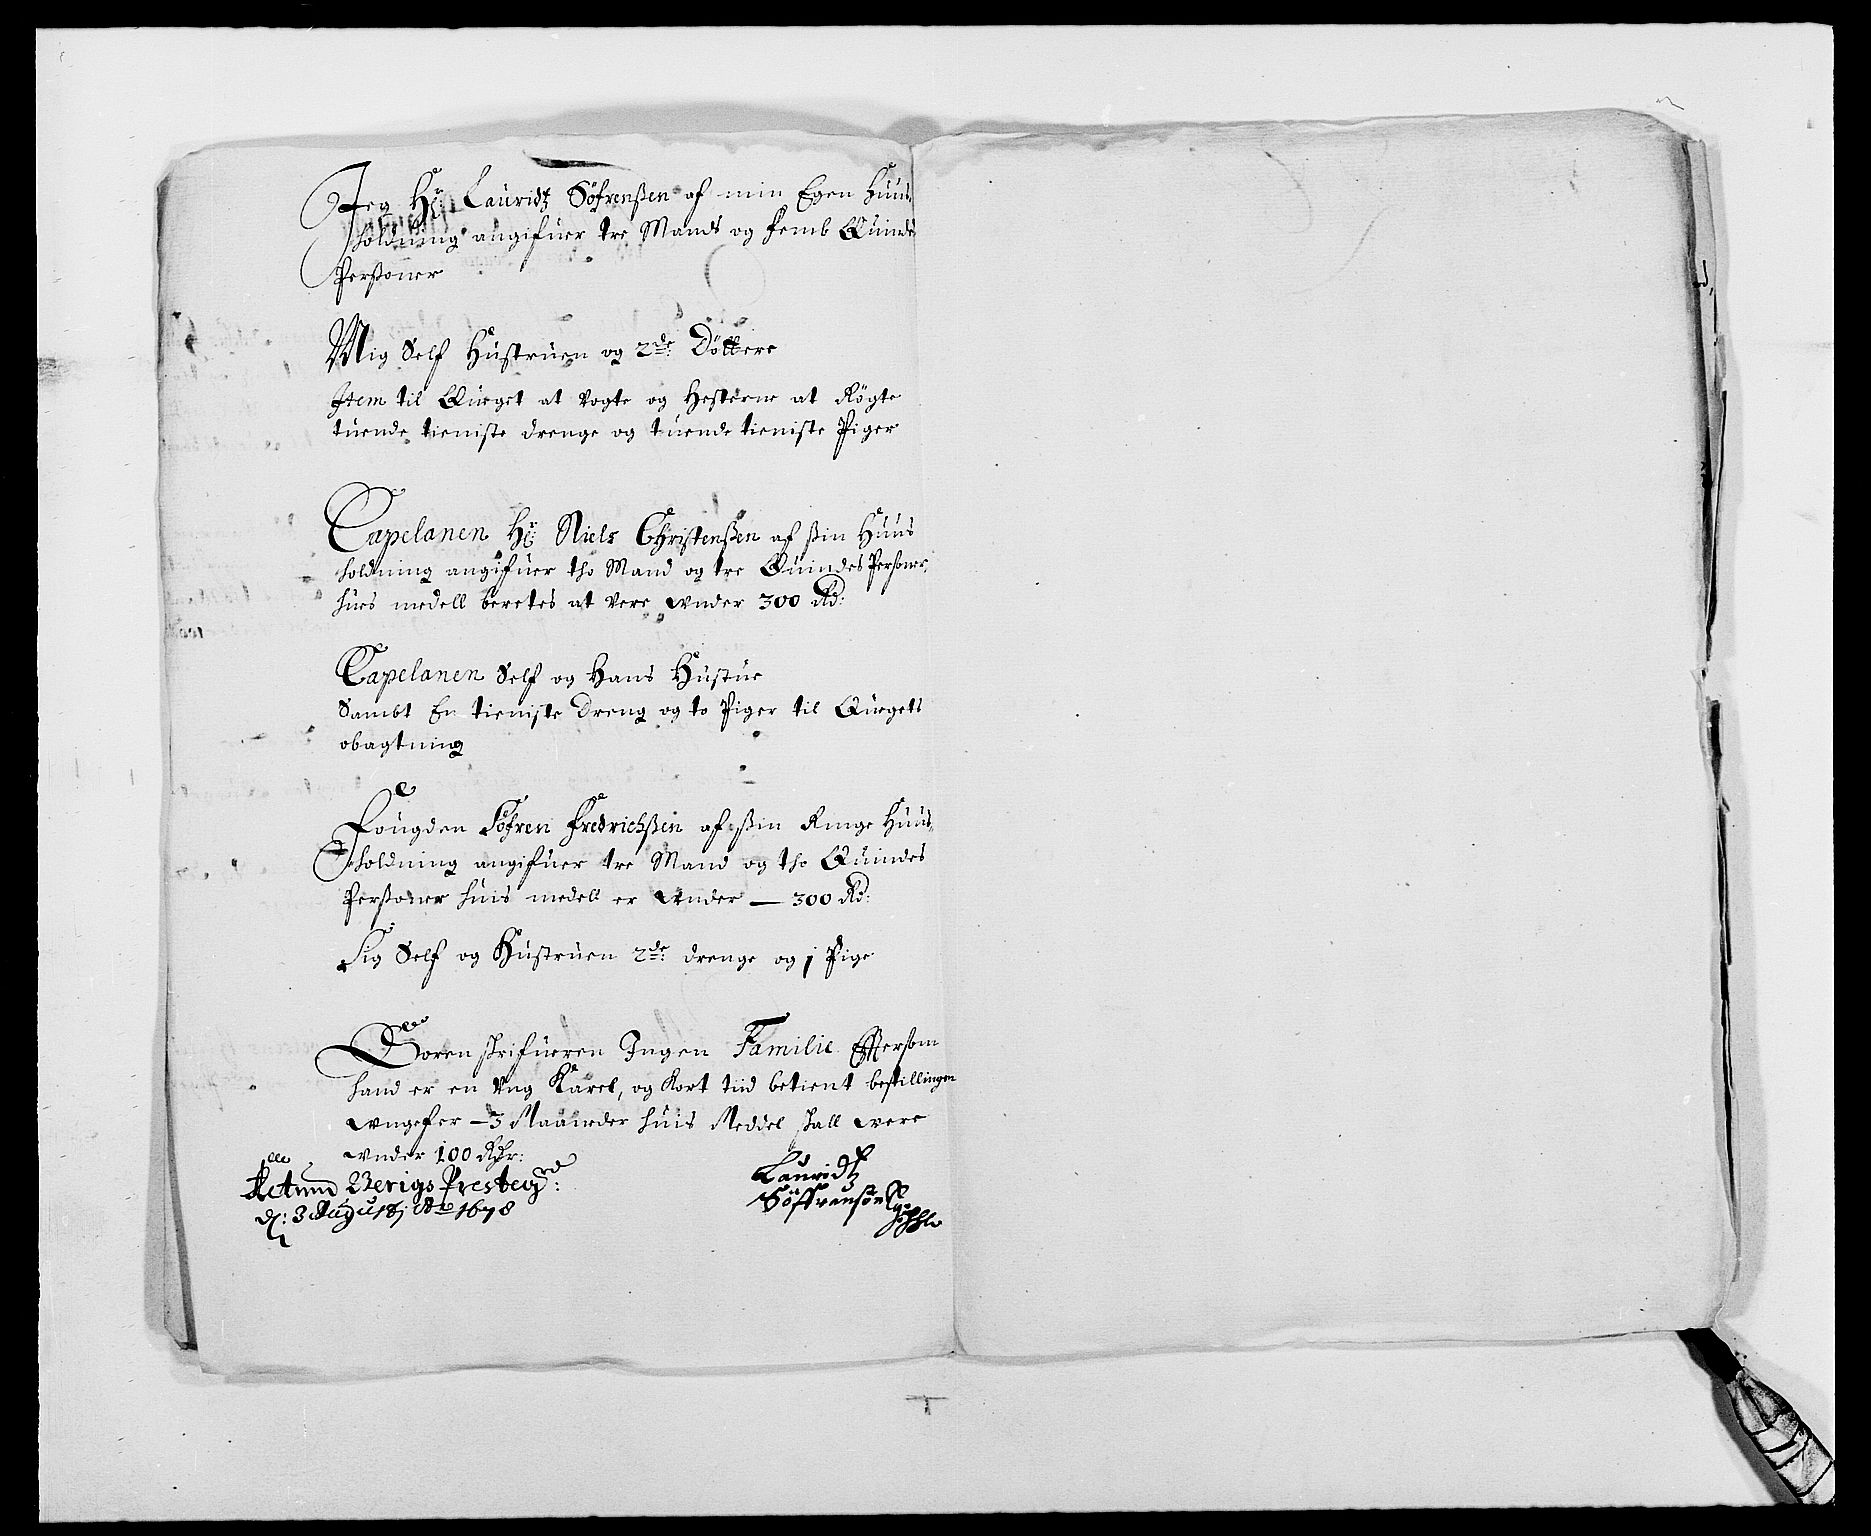 Jeg Hr: Lauridtz Söfrenßen af min Egen Huus
holdning angifuer tre Mands og femb Quinde
Perßoner
Mig Self Hustruen og 2de: Döttere
Item til Qüeget at vogte og Hesterne at Rögte
tuende tieniste drenge og tuende tieniste Piger
Capelanen Hr: Niels Christenßen af ßin Huus
holdning angifuer tho Mand og tre Quindes Perßoner,
hues medell beretes at vere under 300 Rd:
Capelanen Self og Hans Hustue
Sambt En tieniste Dreng og to Piger til Qüegets
obagtning
Fougden Söfren Fredrichßen af ßin Ringe Huus
holdning angifuer tre Mand og tho Quindes
Perßoner huis medell er under — 300 Rd:
Sig Self og Hustruen 2de: drenge og 1 Pige
Soren skrifueren Ingen Familie Efftersom
hand er en ung Karel, og Kort tiid betient bestillingen
ungefer – 3 Maaneder huis Meddel skall were
under 100 Rdr:
Actum Berigs Prestegrd:
d: 3 Augusti Ao 1678
Lauridtz
Söffrensön